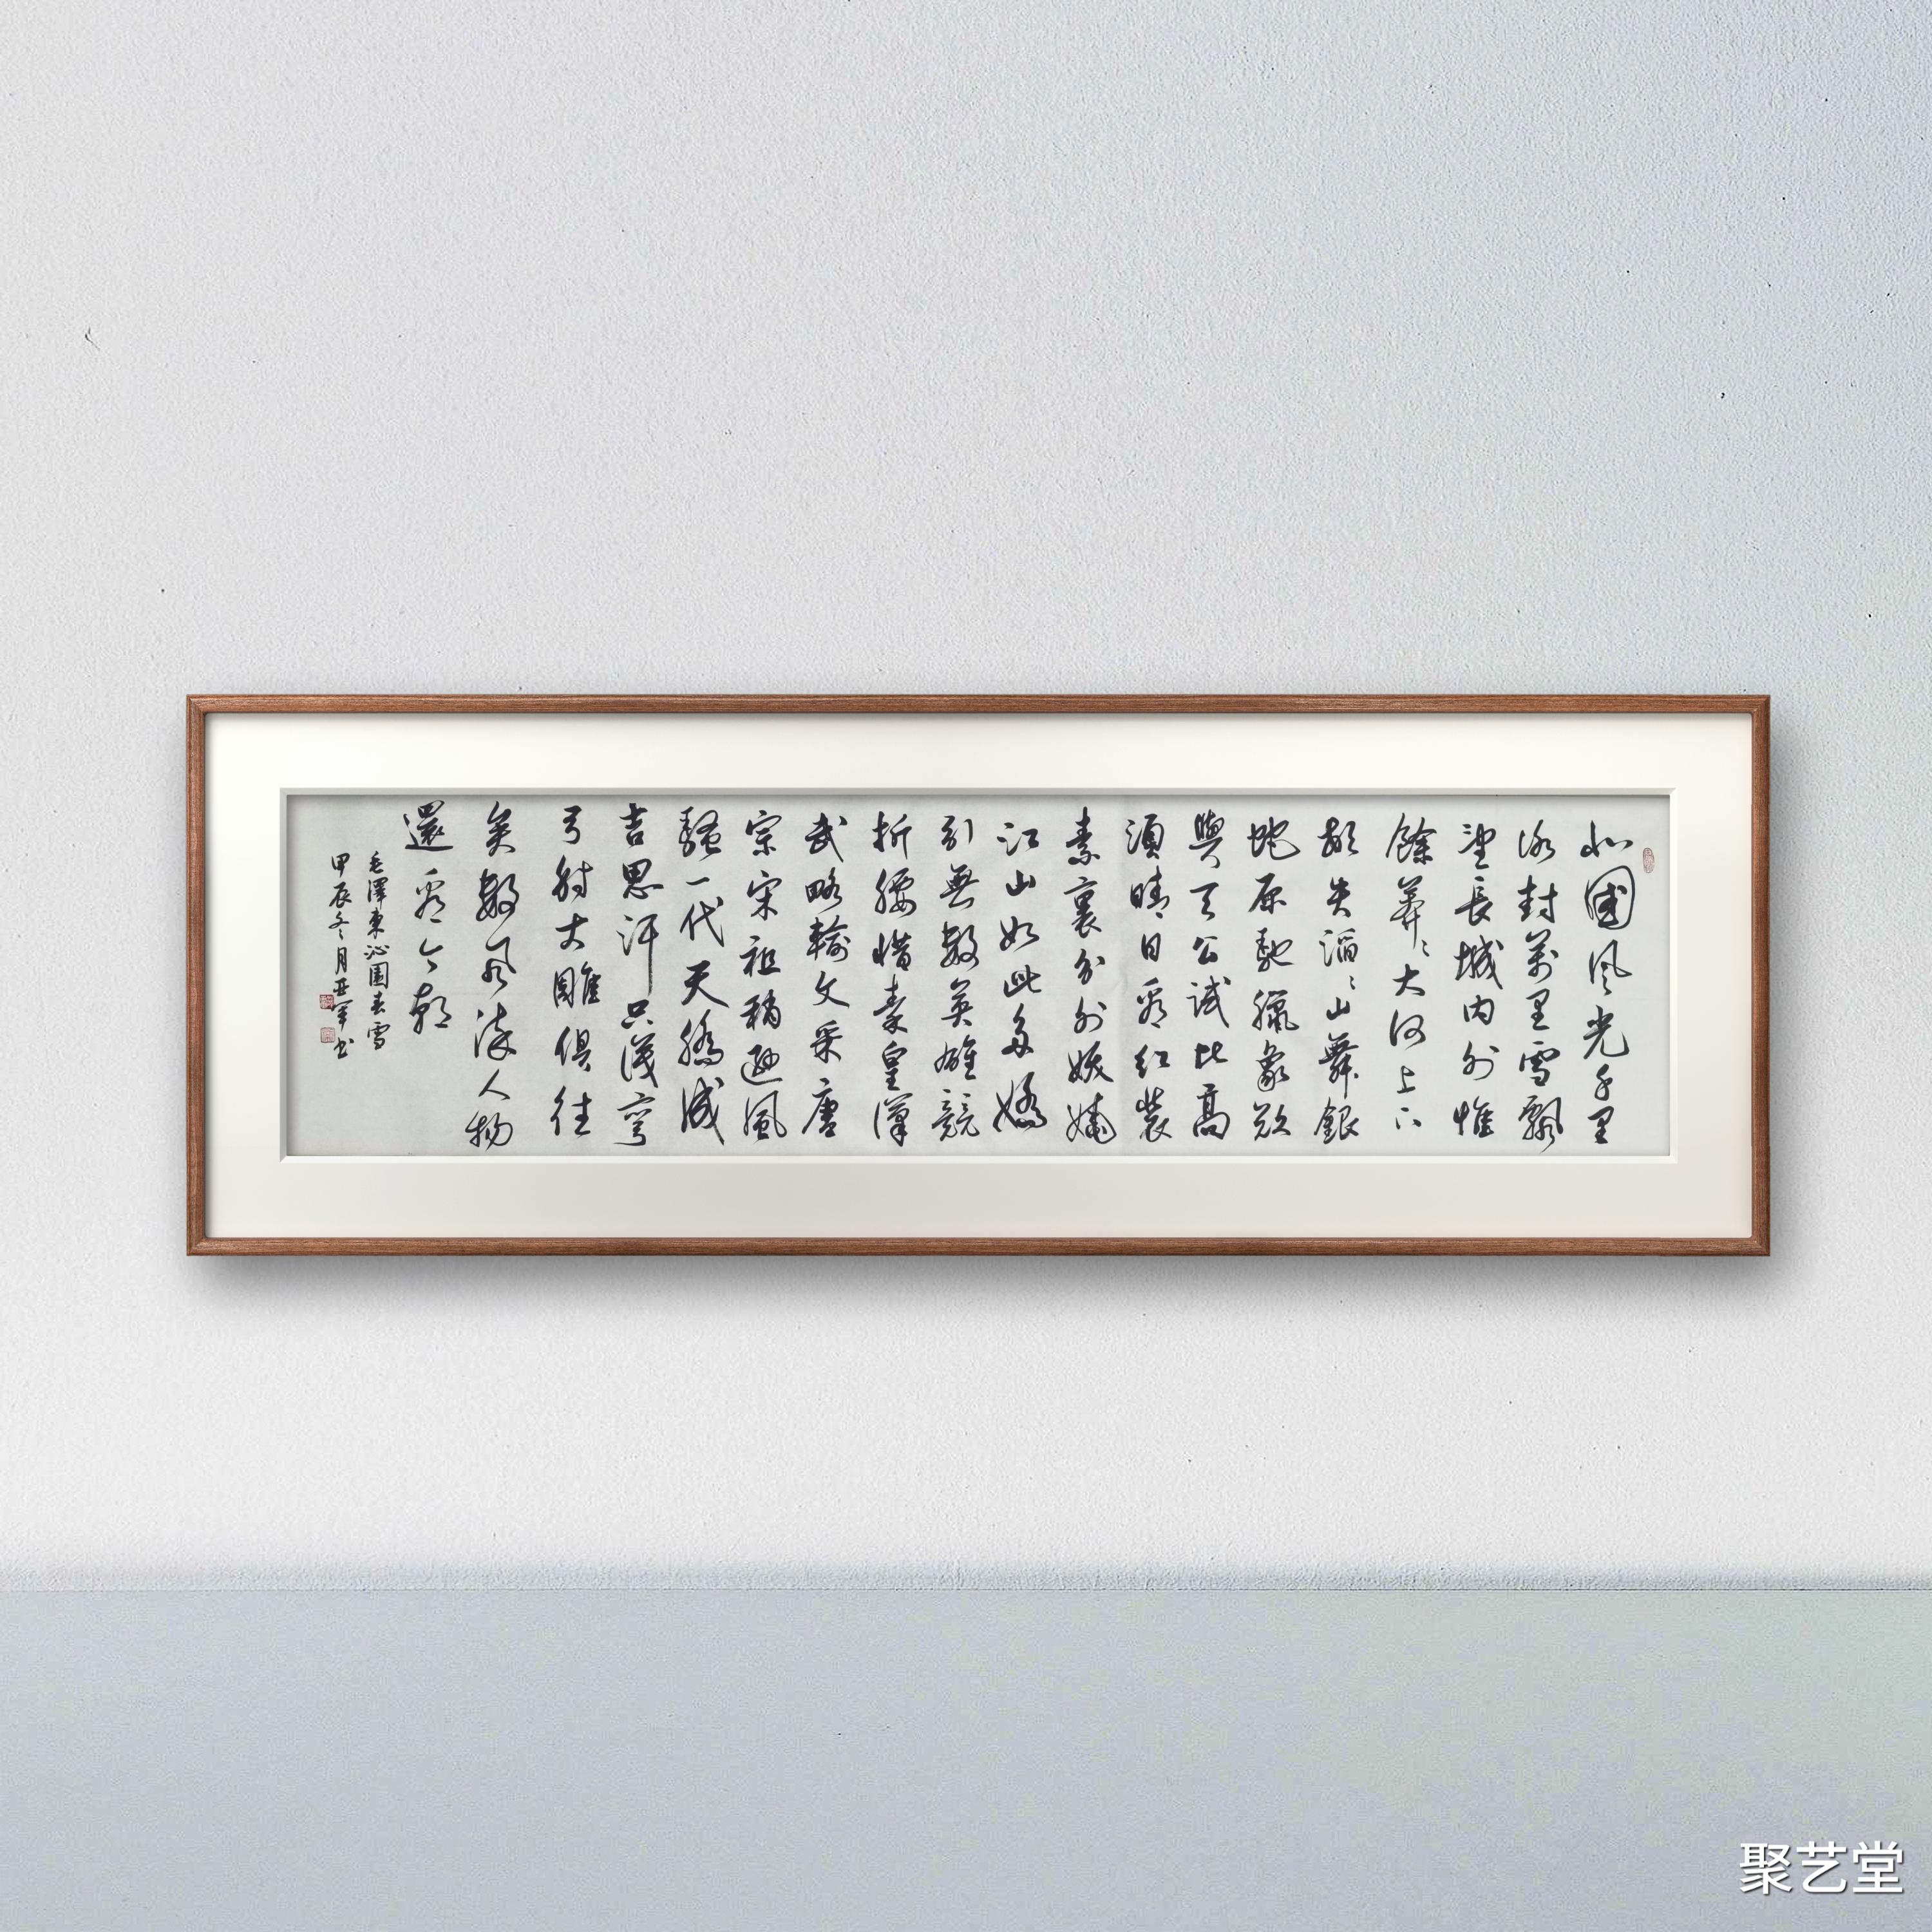 北國風光千里
冰封萬里雪飄
望長城內外惟
餘莽〻大河上下
頓失滔〻山舞銀
蛇原馳臘象欲
與天公試比高
須晴日看紅裝
素裹分外妖嬈
江山如此多嬌
引無數英雄競
折腰惜秦皇漢
武略輸文采唐
宗宋祖稍遜風
騷一代天驕成
吉思汗只識彎
弓射大雕俱往
矣數風流人物
還看今朝
毛澤東沁園春雪
甲辰冬月亞軍书
聚艺堂